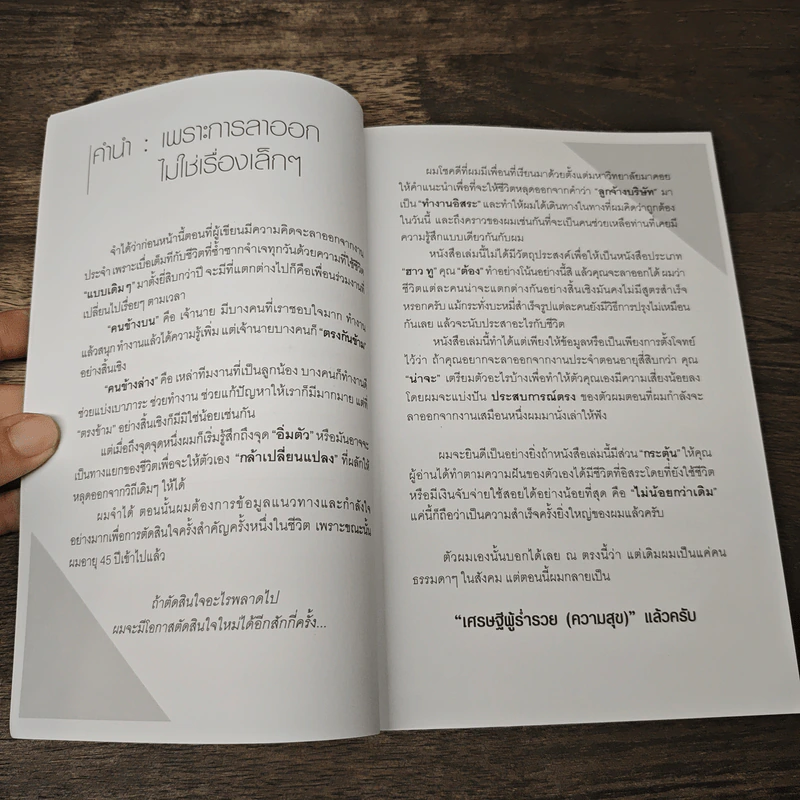 คำนำ : เพราะการลาออก
ไม่ใช่เรื่องเล็กๆ
จำได้ว่าก่อนหน้านี้ตอนที่ผู้เขียนมีความคิดจะลาออกจากงาน
ประจำ เพราะเบื่อเต็มทีกับชีวิตที่ซ้ำซากจำเจทุกวันด้วยความที่ใช้ชีวิต
"แบบเดิมๆ" มาตั้งยี่สิบกว่าปี จะมีที่แตกต่างไปก็คือเพื่อนร่วมงานที่
เปลี่ยนไปเรื่อยๆ ตามเวลา
"คนข้างบน" คือ เจ้านาย มีบางคนที่เราชอบใจมาก ทำงาน
แล้วสนุก ทำงานแล้วได้ความรู้เพิ่ม แต่เจ้านายบางคนก็ "ตรงกันข้าม"
อย่างสิ้นเชิง
"คนข้างล่าง" คือ เหล่าทีมงานที่เป็นลูกน้อง บางคนก็ทำงานดี
ช่วยแบ่งเบาภาระ ช่วยทำงาน ช่วยแก้ปัญหาให้เราก็มีมากมาย แต่ที่
"ตรงข้าม" อย่างสิ้นเชิงก็มีมิใช่น้อยเช่นกัน
แต่เมื่อถึงจุดจุดหนึ่งผมก็เริ่มรู้สึกถึงจุด "อิ่มตัว" หรือมันอาจจะ
เป็นทางแยกของชีวิตเพื่อจะให้ตัวเอง "กล้าเปลี่ยนแปลง" ที่ผลักให้
หลุดออกจากวิถีเดิมๆ ให้ได้
ผมจำได้ ตอนนั้นผมต้องการข้อมูลแนวทางและกำลังใจ
อย่างมากเพื่อการตัดสินใจครั้งสำคัญครั้งหนึ่งในชีวิต เพราะขณะนั้น
ผมอายุ 45 ปีเข้าไปแล้ว
ถ้าตัดสินใจอะไรพลาดไป
ผมจะมีโอกาสตัดสินใจใหม่ได้อีกสักกี่ครั้ง...
ผมโชคดีที่ผมมีเพื่อนที่เรียนมาด้วยตั้งแต่มหาวิทยาลัยมาคอย
ให้คำแนะนำเพื่อที่จะให้ชีวิตหลุดออกจากคำว่า "ลูกจ้างบริษัท" มา
เป็น "ทำงานอิสระ" และทำให้ผมได้เดินทางในทางที่ผมคิดว่าถูกต้อง
ในวันนี้ และถึงคราวของผมเช่นกันที่จะเป็นคนช่วยเหลือท่านที่เคยมี
ความรู้สึกแบบเดียวกันกับผม
หนังสือเล่มนี้ไม่ได้มีวัตถุประสงค์เพื่อให้เป็นหนังสือประเภท
"ฮาว ทู" คุณ "ต้อง" ทำอย่างโน้นอย่างนี้สิ แล้วคุณจะลาออกได้ ผมว่า
ชีวิตแต่ละคนน่าจะแตกต่างกันอย่างสิ้นเชิงมันคงไม่มีสูตรสำเร็จ
หรอกครับ แม้กระทั่งบะหมี่สำเร็จรูปแต่ละคนยังมีวิธีการปรุงไม่เหมือน
กันเลย แล้วจะนับประสาอะไรกับชีวิต
หนังสือเล่มนี้ทำได้แต่เพียงให้ข้อมูลหรือเป็นเพียงการตั้งโจทย์
ไว้ว่า ถ้าคุณอยากจะลาออกจากงานประจำตอนอายุสี่สิบกว่า คุณ
"น่าจะ" เตรียมตัวอะไรบ้างเพื่อทำให้ตัวคุณเองมีความเสี่ยงน้อยลง
โดยผมจะแบ่งปัน ประสบการณ์ตรง ของตัวผมตอนที่ผมกำลังจะ
ลาออกจากงานเสมือนหนึ่งผมมานั่งเล่าให้ฟัง
ผมจะยินดีเป็นอย่างยิ่งถ้าหนังสือเล่มนี้มีส่วน "กระตุ้น" ให้คุณ
ผู้อ่านได้ทำตามความฝันของตัวเองได้มีชีวิตที่อิสระโดยที่ยังใช้ชีวิต
หรือมีเงินจับจ่ายใช้สอยได้อย่างน้อยที่สุด คือ "ไม่น้อยกว่าเดิม"
แค่นี้ก็ถือว่าเป็นความสำเร็จครั้งยิ่งใหญ่ของผมแล้วครับ
ตัวผมเองนั้นบอกได้เลย ณ ตรงนี้ว่า แต่เดิมผมเป็นแค่คน
ธรรมดาๆ ในสังคม แต่ตอนนี้ผมกลายเป็น
"เศรษฐีผู้ร่ำรวย (ความสุข)" แล้วครับ